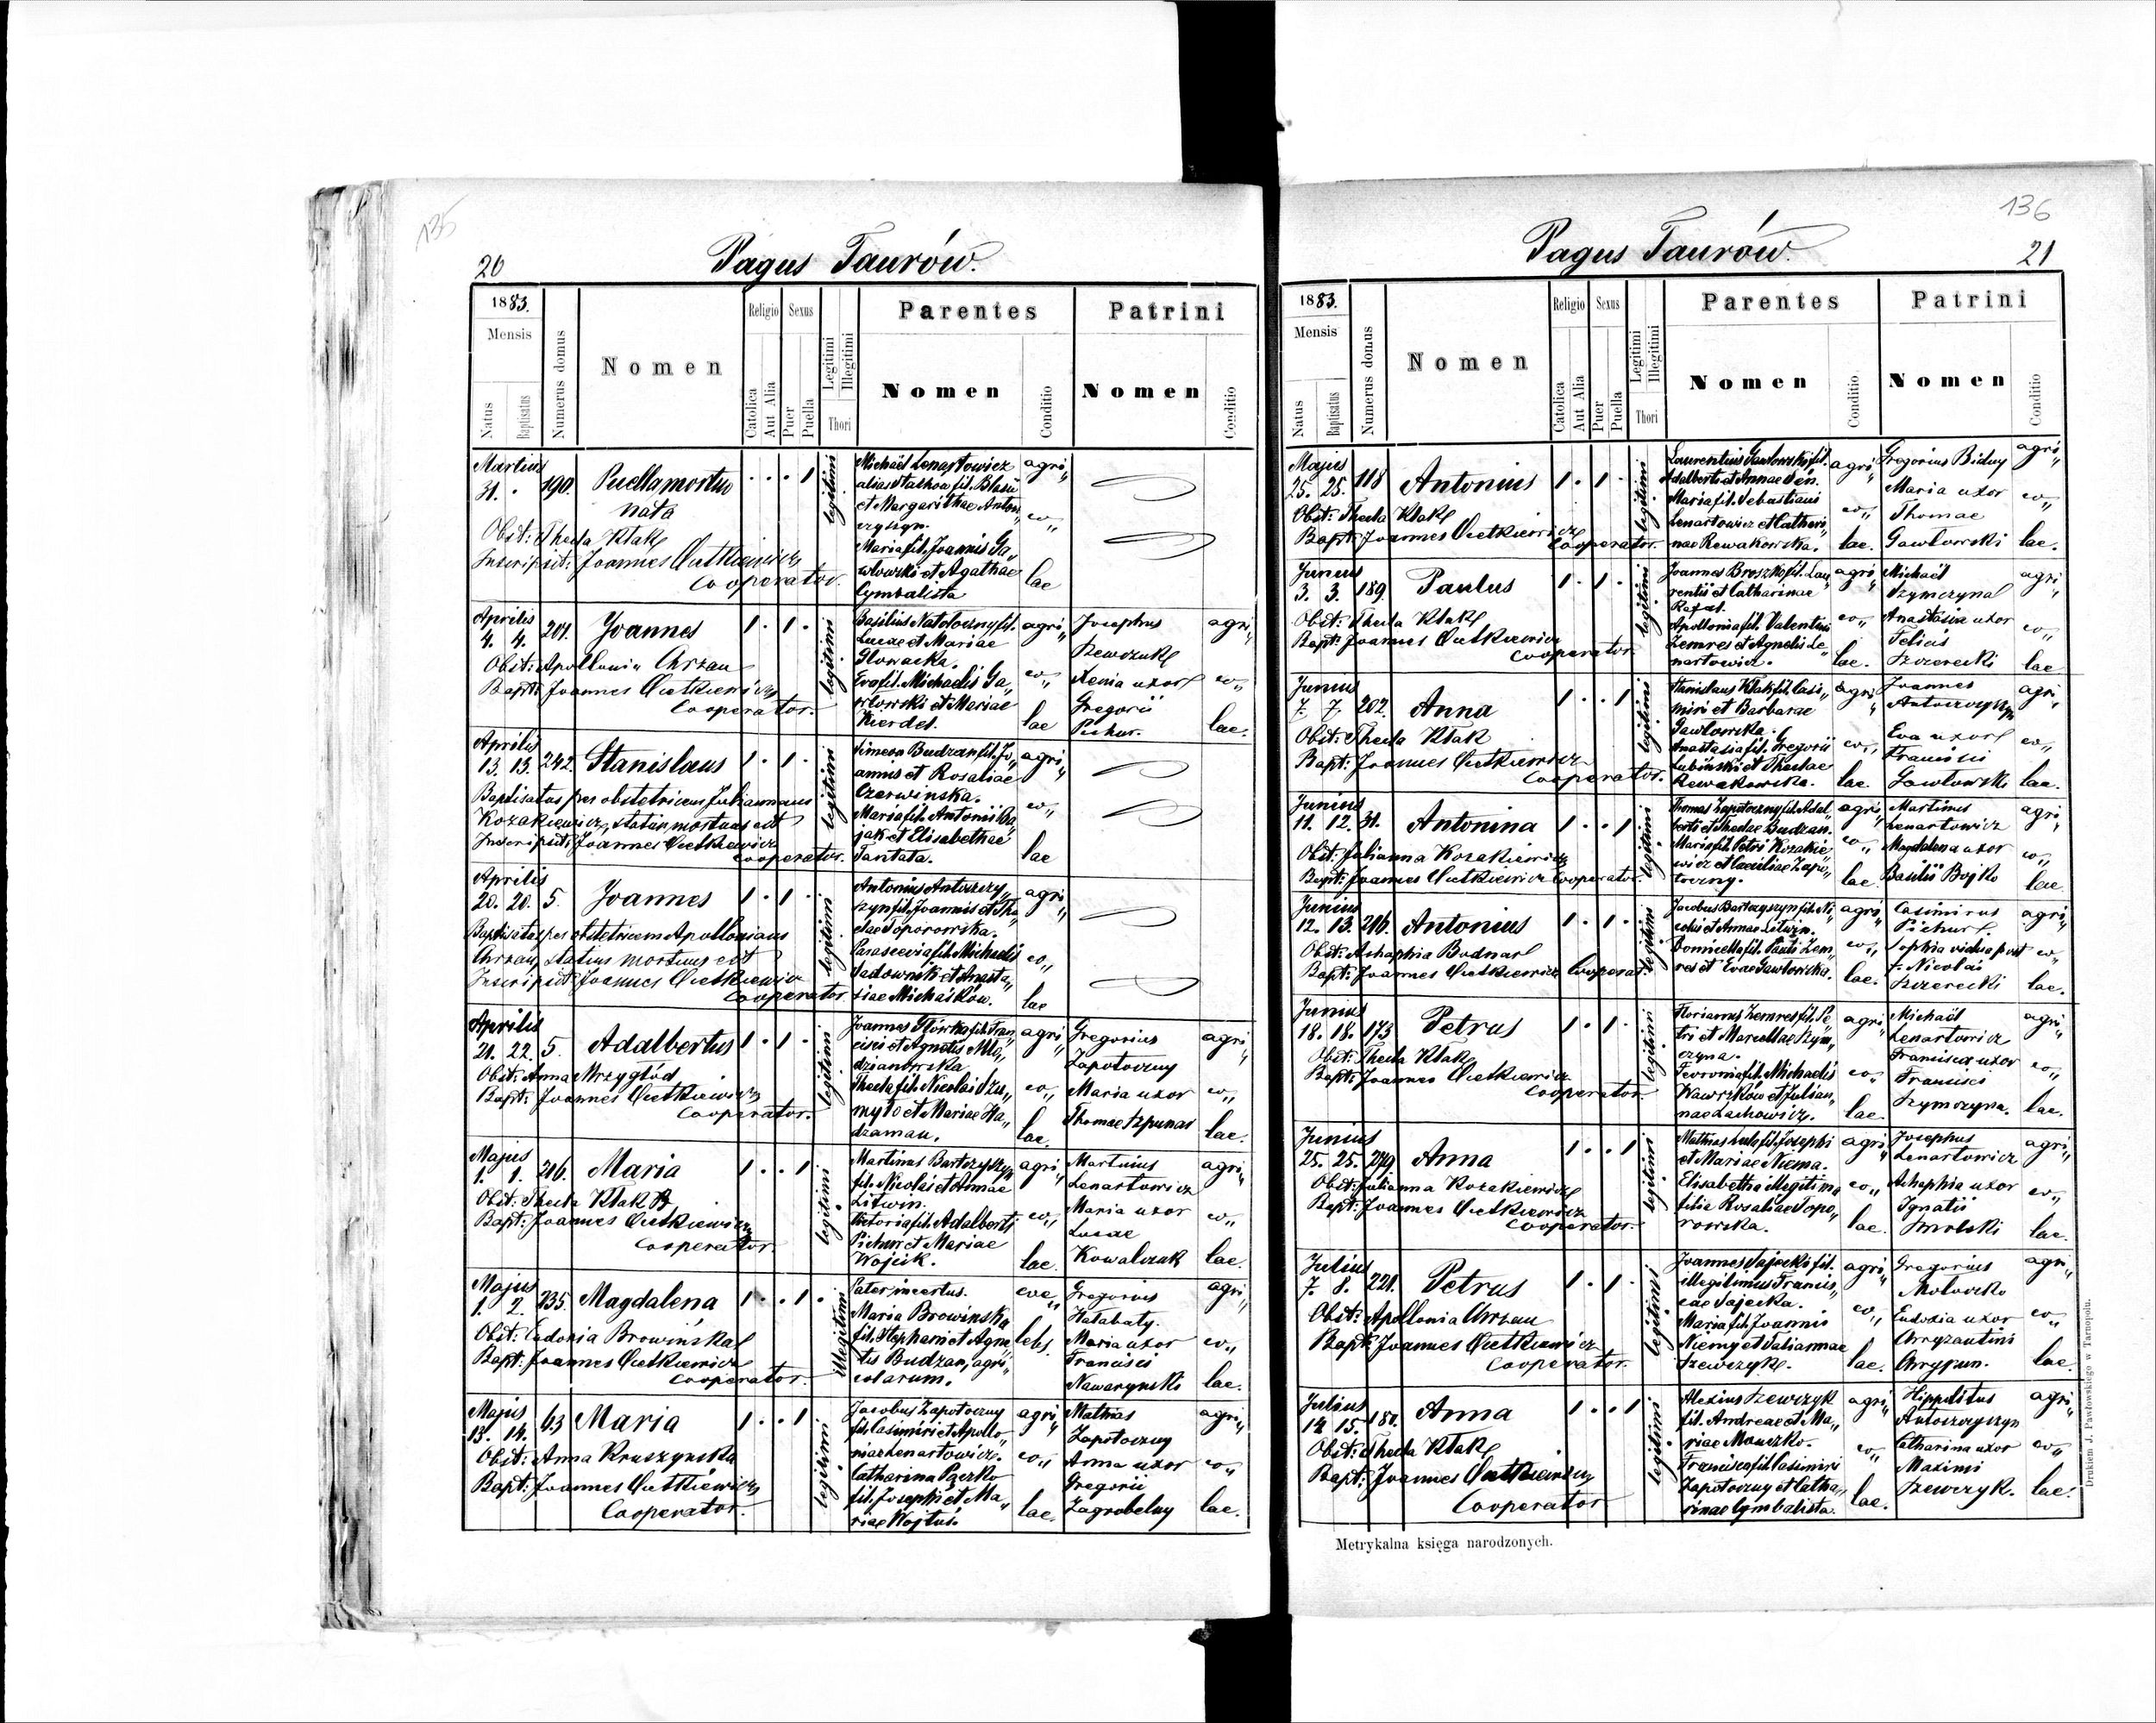 135
20
Pagus Taurów.
1883.
Mensis
Natus
Baptisatus
Numerus domus
Nomen
Religio
Catolica
Aut Alia
Sexus
Puer
Puella
Legitimi
Illegitimi
Thori
Parentes
Nomen
Conditio
Patrini
Nomen
Conditio
Martius
31. 190. Puella mortuo
nata
Obst: Thecla Kłak
Inscripsit: Joannes
Cooperator.
legitimi
Michaël Lenartowicz
alias Stałkoa fil. Blasii
et Margarithae Anton„
czyszyn.
Maria fil. Joannis Ga„
włowski et Agathae
Cymbalista
agri„
co„
lae
Aprilis
4. 4. 201. Joannes 1 . 1 .
Obst: Apollonia Chrzan
Bapt: Joannes
Cooperator.
legitimi
Basilius Natoloczny fil.
Lucae et Mariae
Głowacka.
Eva fil. Michaelis Ga„
włowski et Mariae
Kierdel.
agri„
co„
lae
Josephus
Szewczuk
Xenia uxor
Gregorii
Pichur.
agri„
co„
lae.
Aprilis
13. 13. 242. Stanislaus 1 . 1 .
Baptisatus per obstetricem Juliannam
Kozakiewicz, statim mortuus est
Inscripsit: Joannes
Cooperator.
legitimi
Simeon Budzan fil. Jo„
annis et Rosaliae
Czerwinska.
Maria fil. Antonii Ba„
jak et Elisabethae
Tantata.
agri„
co„
lae
Aprilis
20. 20. 5. Joannes 1 . 1 .
Baptisatus per obstetricem Apolloniam
Chrzan, statim mortuus est
Inscripsit Joannes
Cooperator.
legitimi
Antonius Antoszczy„
szyn fil. Joannis et The„
clae Toporowska.
Parascevia fil. Michaelis
Sadownik et Anasta„
siae Michaiłów.
agri„
co„
lae
Aprilis
21. 22. 5. Adalbertus 1 . 1 .
Obst: Anna Mrzygłód
Bapt: Joannes
Cooperator.
legitimi
Joannes Głórka fil. Fran„
cisci et Agnetis Mła„
dzianowska.
Thecla fil. Nicolai Szu„
myło et Mariae Ha„
dzaman.
agri„
co„
lae.
Gregorius
Zapotoczny
Maria uxor
Thomae Szpunar
agri„
co„
lae.
Majus
1. 1. 216. Maria 1 . . 1
Obst: Thecla Kłak
Bapt: Joannes
Cooperator.
legitimi
Martinus Bartczyszyn
fil. Nicolai et Annae
Litwin.
Victoria fil. Adalberti
Pichur et Mariae
Wojcik.
agri„
co„
lae.
Martinus
Lenartowicz
Maria uxor
Lucae
Kowalczuk
agri„
co„
lae.
Majus
1. 2. 135. Magdalena 1 . . 1 .
Obst: Eudoxia Browińska
Bapt: Joannes
Cooperator.
illegitimi
Pater incertus.
Maria Browinska
fil. Stephani et Agne„
tis Budzan, agri„
colarum.
cae„
lebs.
Gregorius
Hałabaty.
Maria uxor
Francisci
Nawarynski
agri„
co„
lae.
Majus
13. 14. 43 Maria 1 . . 1
Obst: Anna Kruszynska
Bapt: Joannes
Cooperator.
legitimi
Jacobus Zapotoczny
fil. Casimiri et Apollo„
niae Lenartowicz.
Catharina Paczko
fil. Josephi et Ma„
riae Wojtuś.
agri„
co„
lae.
Mathias
Zapotoczny
Anna uxor
Gregorii
Zagrobelny
agri„
co„
lae.
136
21
Pagus Taurów.
1883.
Mensis
Natus
Baptisatus
Numerus domus
Nomen
Religio
Catolica
Aut Alia
Sexus
Puer
Puella
Legitimi
Illegitimi
Thori
Parentes
Nomen
Conditio
Patrini
Nomen
Conditio
Majus
25. 25. 118 Antonius 1 . 1 .
Obst: Thecla Kłak
Bapt: Joannes
Cooperator.
legitimi
Laurentius Gawłowski fil.
Adalberti et Annae Sen.
Maria fil. Sebastiani
Lenartowicz et Cathari„
nae Rewakowska.
agri„
co„
lae.
Gregorius Bidny
Maria uxor
Thomae
Gawłowski
agri„
co„
lae.
Junius
3. 3. 189. Paulus 1 . 1 .
Obst: Thecla Kłak
Bapt: Joannes
Cooperator
legitimi
Joannes Broszko fil. Lau„
rentii et Catharinae
Rafał.
Apollonia fil. Valentini
Zemres et Agnetis Le„
nartowicz.
agri„
co„
lae.
Michaël
Szymczyna
Anastasia uxor
Felicis
Szczerecki
agri„
co„
lae
Junius
7. 7. 202. Anna 1 . . 1
Obst: Thecla Kłak
Bapt: Joannes
Cooperator.
legitimi
Stanislaus Kłak fil. Casi„
miri et Barbarae
Gawłowska.
Anastasia fil. Gregorii
Łubinski et Theclae
Rewakowska.
agri„
co„
lae.
Joannes
Antoszczyszyn
Eva uxor
Francisci
Gawłowski
agri„
co„
lae.
Junius
11. 12. 31. Antonina 1 . . 1 .
Obst: Julianna Kozakiewicz
Bapt: Joannes Cooperator.
legitimi
Thomas Zapotoczny fil. Adal„
berti et Theclae Budzan.
Maria fil. Petri Kozakie„
wicz et Caeciliae Zapo„
toczny.
agri„
co„
lae.
Martinus
Lenartowicz
Magdalena uxor
Basilii Bojko
agri„
co„
lae.
Junius
12. 13. 216. Antonius 1 . 1 .
Obst: Achaphia Bodnar
Bapt: Joannes Cooperat.
legitimi
Jacobus Bartczyszyn fil. Ni„
colai et Annae Litwin.
Domicella fil. Pauli Zem„
res et Evae Gawłowska.
agri„
co„
lae.
Casimirus
Pichur.
Sophia vidua post
+ Nicolai
Szczerecki
agri„
co„
lae.
Junius
18. 18. 173 Petrus 1 . 1 .
Obst: Thecla Kłak
Bapt: Joannes
Cooperator.
legitimi
Florianus Zemres fil. Pe„
tri et Marcellae Szym„
czyna.
Fevronia fil. Michaelis
Wawrzków et Julian„
nae Lachowicz.
agri„
co„
lae.
Michaël
Lenartowicz
Francisca uxor
Francisci
Szymczyna.
agri„
co„
lae.
Junius
25. 25. 279. Anna 1 . . 1
Obst: Julianna Kozakiewicz
Bapt: Joannes
Cooperator.
legitimi
Mathias fil. Josephi
et Mariae Niema.
Elisabetha illegitima
filia Rosaliae Topo„
rowska.
agri„
co„
lae.
Josephus
Lenartowicz
Achaphia uxor
Ignatii
Smolski
agri„
co„
lae.
Julius
7. 8. 221. Petrus 1 . 1 .
Obst: Apollonia Chrzan
Bapt: Joannes
Cooperator.
legitimi
Joannes Sajecki fil.
illegitimus Francis„
cae Sajecka.
Maria fil. Joannis
Niemy et Juliannae
Szewczyk.
agri„
co„
lae.
Gregorius
Mołoczko
Eudoxia uxor
Chryzantini
Chrypun.
agri„
co„
lae.
Julius
14 15. 180. Anna 1 . . 1
Obst: Thecla Kłak
Bapt: Joannes
Cooperator
legitimi
Alexius Szewczyk
fil. Andreae et Ma„
riae Maczko.
Francisca fil. Casimiri
Zapotoczny et Catha„
rinae Cymbalista.
agri„
co„
lae.
Hippolitus
Antoszczyszyn
Catharina uxor
Maximi
Szewczyk.
agri„
co„
lae.
Metrykalna księga narodzonych.
Drukiem J. Pawłowskiego w Tarnopolu.